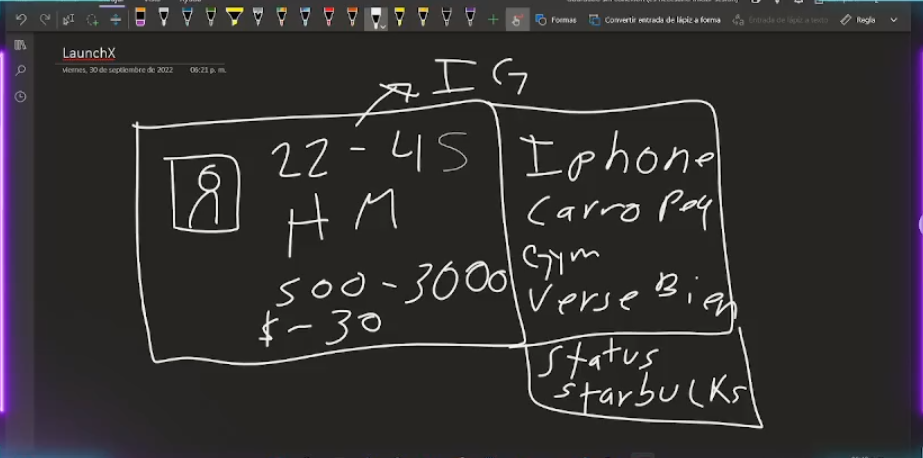 Formas
Convertir entrada de lápiz a forma
Entrada de lápiz a texto
Regla
LaunchX
viernes, 30 de septiembre de 2022 06:21 p. m.
IG
22 - 45
H M
500 - 3000
$ - 30
Iphone
Carro Peq
Gym
Verse Bien
Status
Starbucks